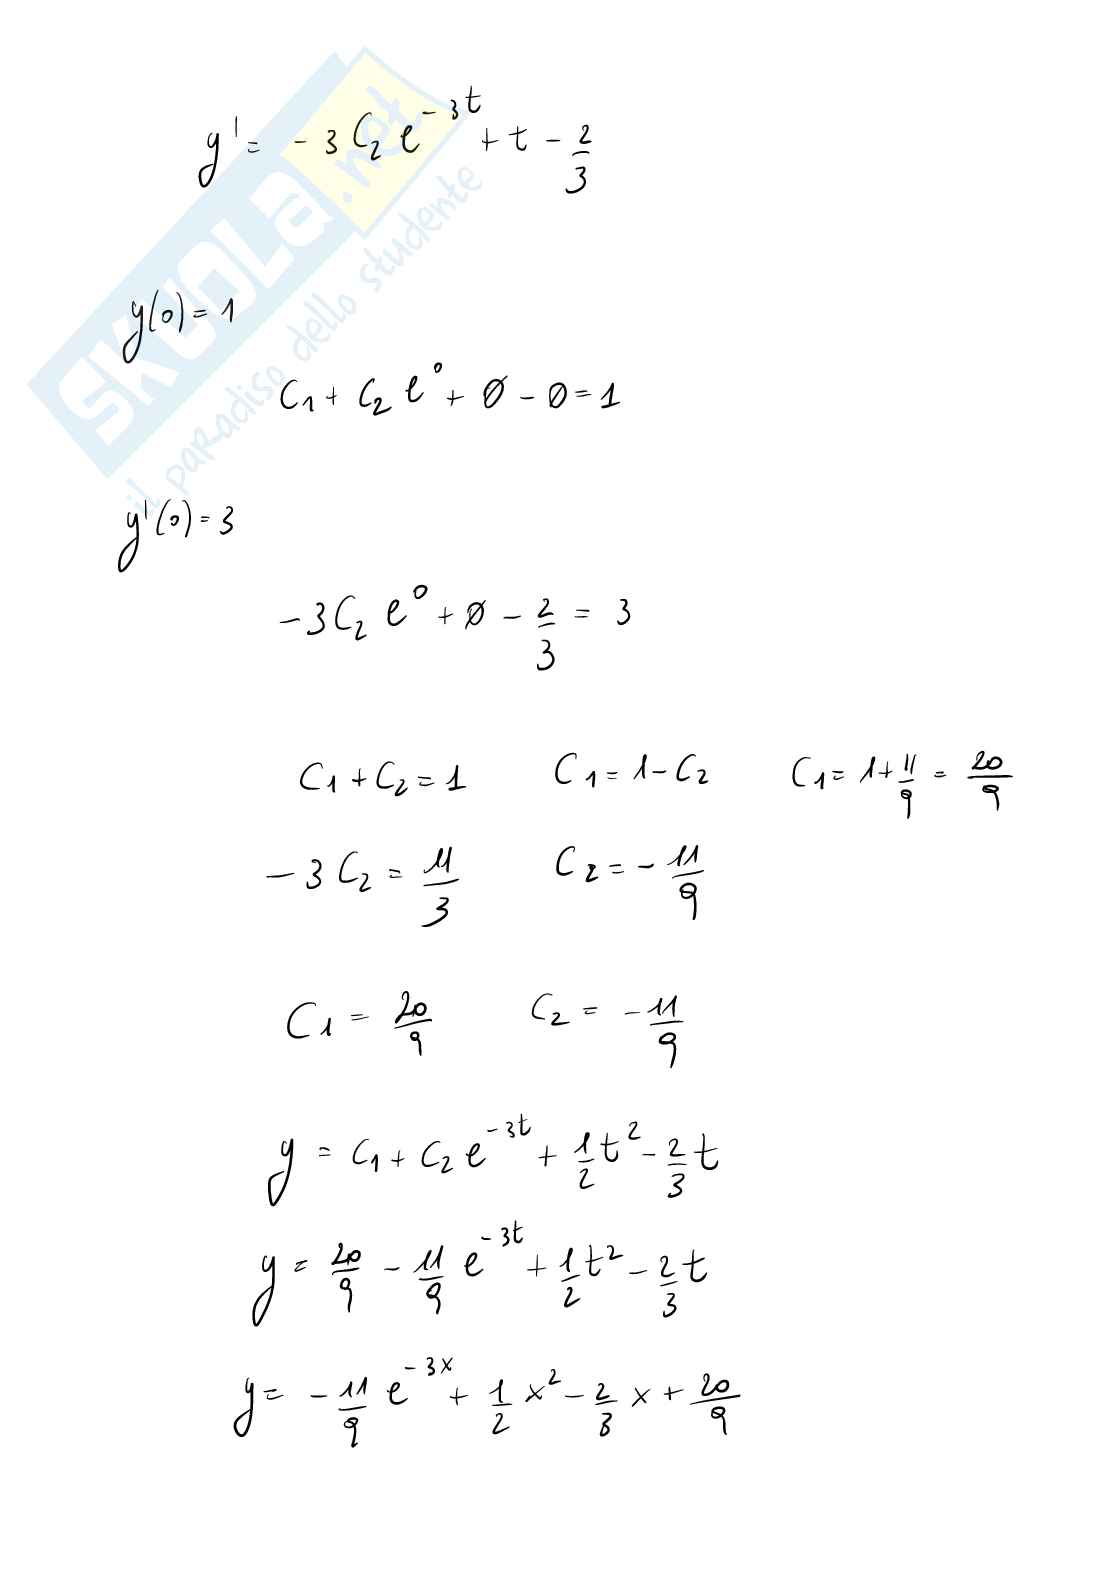 y' = - 3 C₂ e^{-3t} + t - 2/3
SKUOLA.net
il paradiso dello studente
y(0) = 1
C₁ + C₂ e⁰ + 0 - 0 = 1
y'(0) = 3
- 3 C₂ e⁰ + 0 - 2/3 = 3
C₁ + C₂ = 1   C₁ = 1 - C₂   C₁ = 1 + 11/9 = 20/9
- 3 C₂ = 11/3   C₂ = - 11/9
C₁ = 20/9   C₂ = - 11/9
y = C₁ + C₂ e^{-3t} + 1/2 t² - 2/3 t
y = 20/9 - 11/9 e^{-3t} + 1/2 t² - 2/3 t
y = - 11/9 e^{-3x} + 1/2 x² - 2/3 x + 20/9